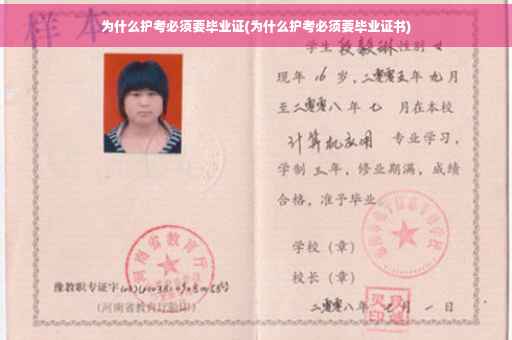 样本
为什么护考必须要毕业证(为什么护考必须要毕业证书)
学生 段毅琳 性别 女
现年 16 岁，二零零五年 九月
至二零零八年 七 月在本校
计算机应用 专业学习，
学制 三 年，修业期满，成绩
合格，准予毕业。
学校（章）
校长（章）
二零零八年 七 月 一 日
河南省教育厅
豫教职专证字
（河南省教育厅验印）